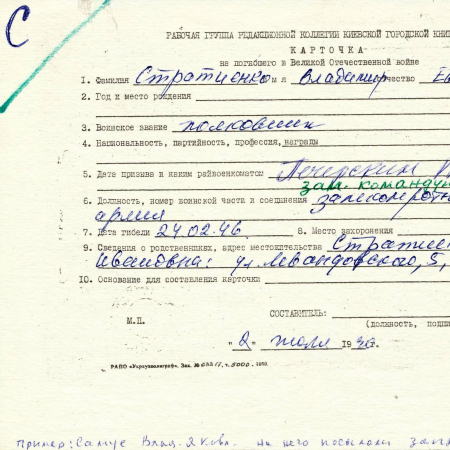 С
РАБОЧАЯ ГРУППА РЕДАКЦИОННОЙ КОЛЛЕГИИ КИЕВСКОЙ ГОРОДСКОЙ КНИ
КАРТОЧКА
на погибшего в Великой Отечественной войне
1. Фамилия Стратиенко мя Владимир чество
2. Год и место рождения
3. Воинское звание полковник
4. Национальность, партийность, профессия, награды
5. Дата призыва и каким райвоенкоматом Печерским
зам. команду
6. Должность, номер воинской части и соединения
армия
7. Дата гибели 24.02.46 8. Место захоронения
9. Сведения о родственниках, адрес местожительства
Ивановна: ул. 5,
10. Основание для составления карточки
СОСТАВИТЕЛЬ:
М.П. (должность, подпи
"2" 19
РАПО «Укрвузполиграф». Зак. № т. 5000. 1990.
пример: Самус Влад. Яковл. на него посылали запр